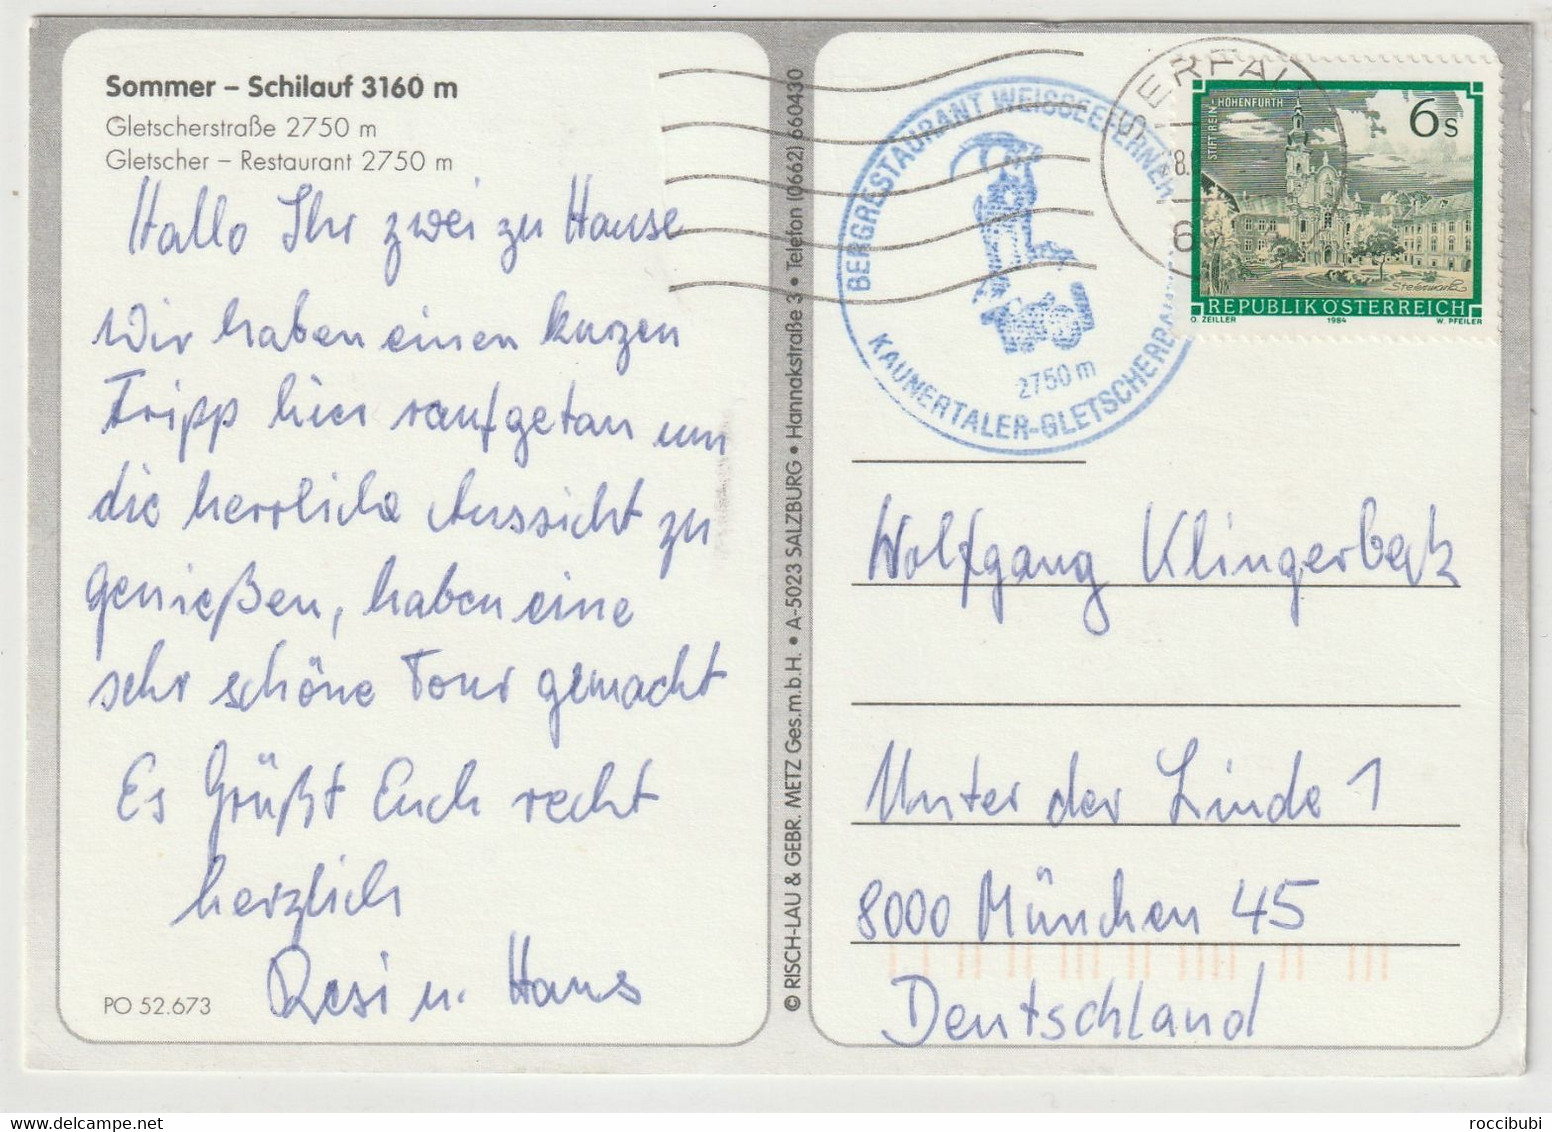 Sommer – Schilauf 3160 m
Gletscherstraße 2750 m
Gletscher – Restaurant 2750 m
Hallo Ihr zwei zu Hause
Wir haben einen kurzen
Tripp hier raufgetan um
die herrliche Aussicht zu
genießen, haben eine
sehr schöne Tour gemacht
Es Grüßt Euch recht
herzlich
Resi u. Hans
PO 52.673
© RISCH-LAU & GEBR. METZ Ges.m.b.H. • A-5023 SALZBURG • Hannakstraße 3 • Telefon (0662) 660430
BERGRESTAURANT WEISSEEFERNER
2750 m
KAUNERTALER-GLETSCHERBAHN
SERFAUS
STIFT REIN-HOHENFURTH
6 S
Steiermark
REPUBLIK ÖSTERREICH
O. ZEILLER 1984 W. PFEILER
Wolfgang Klingerbeck
Unter der Linde 1
8000 München 45
Deutschland
roccibubi